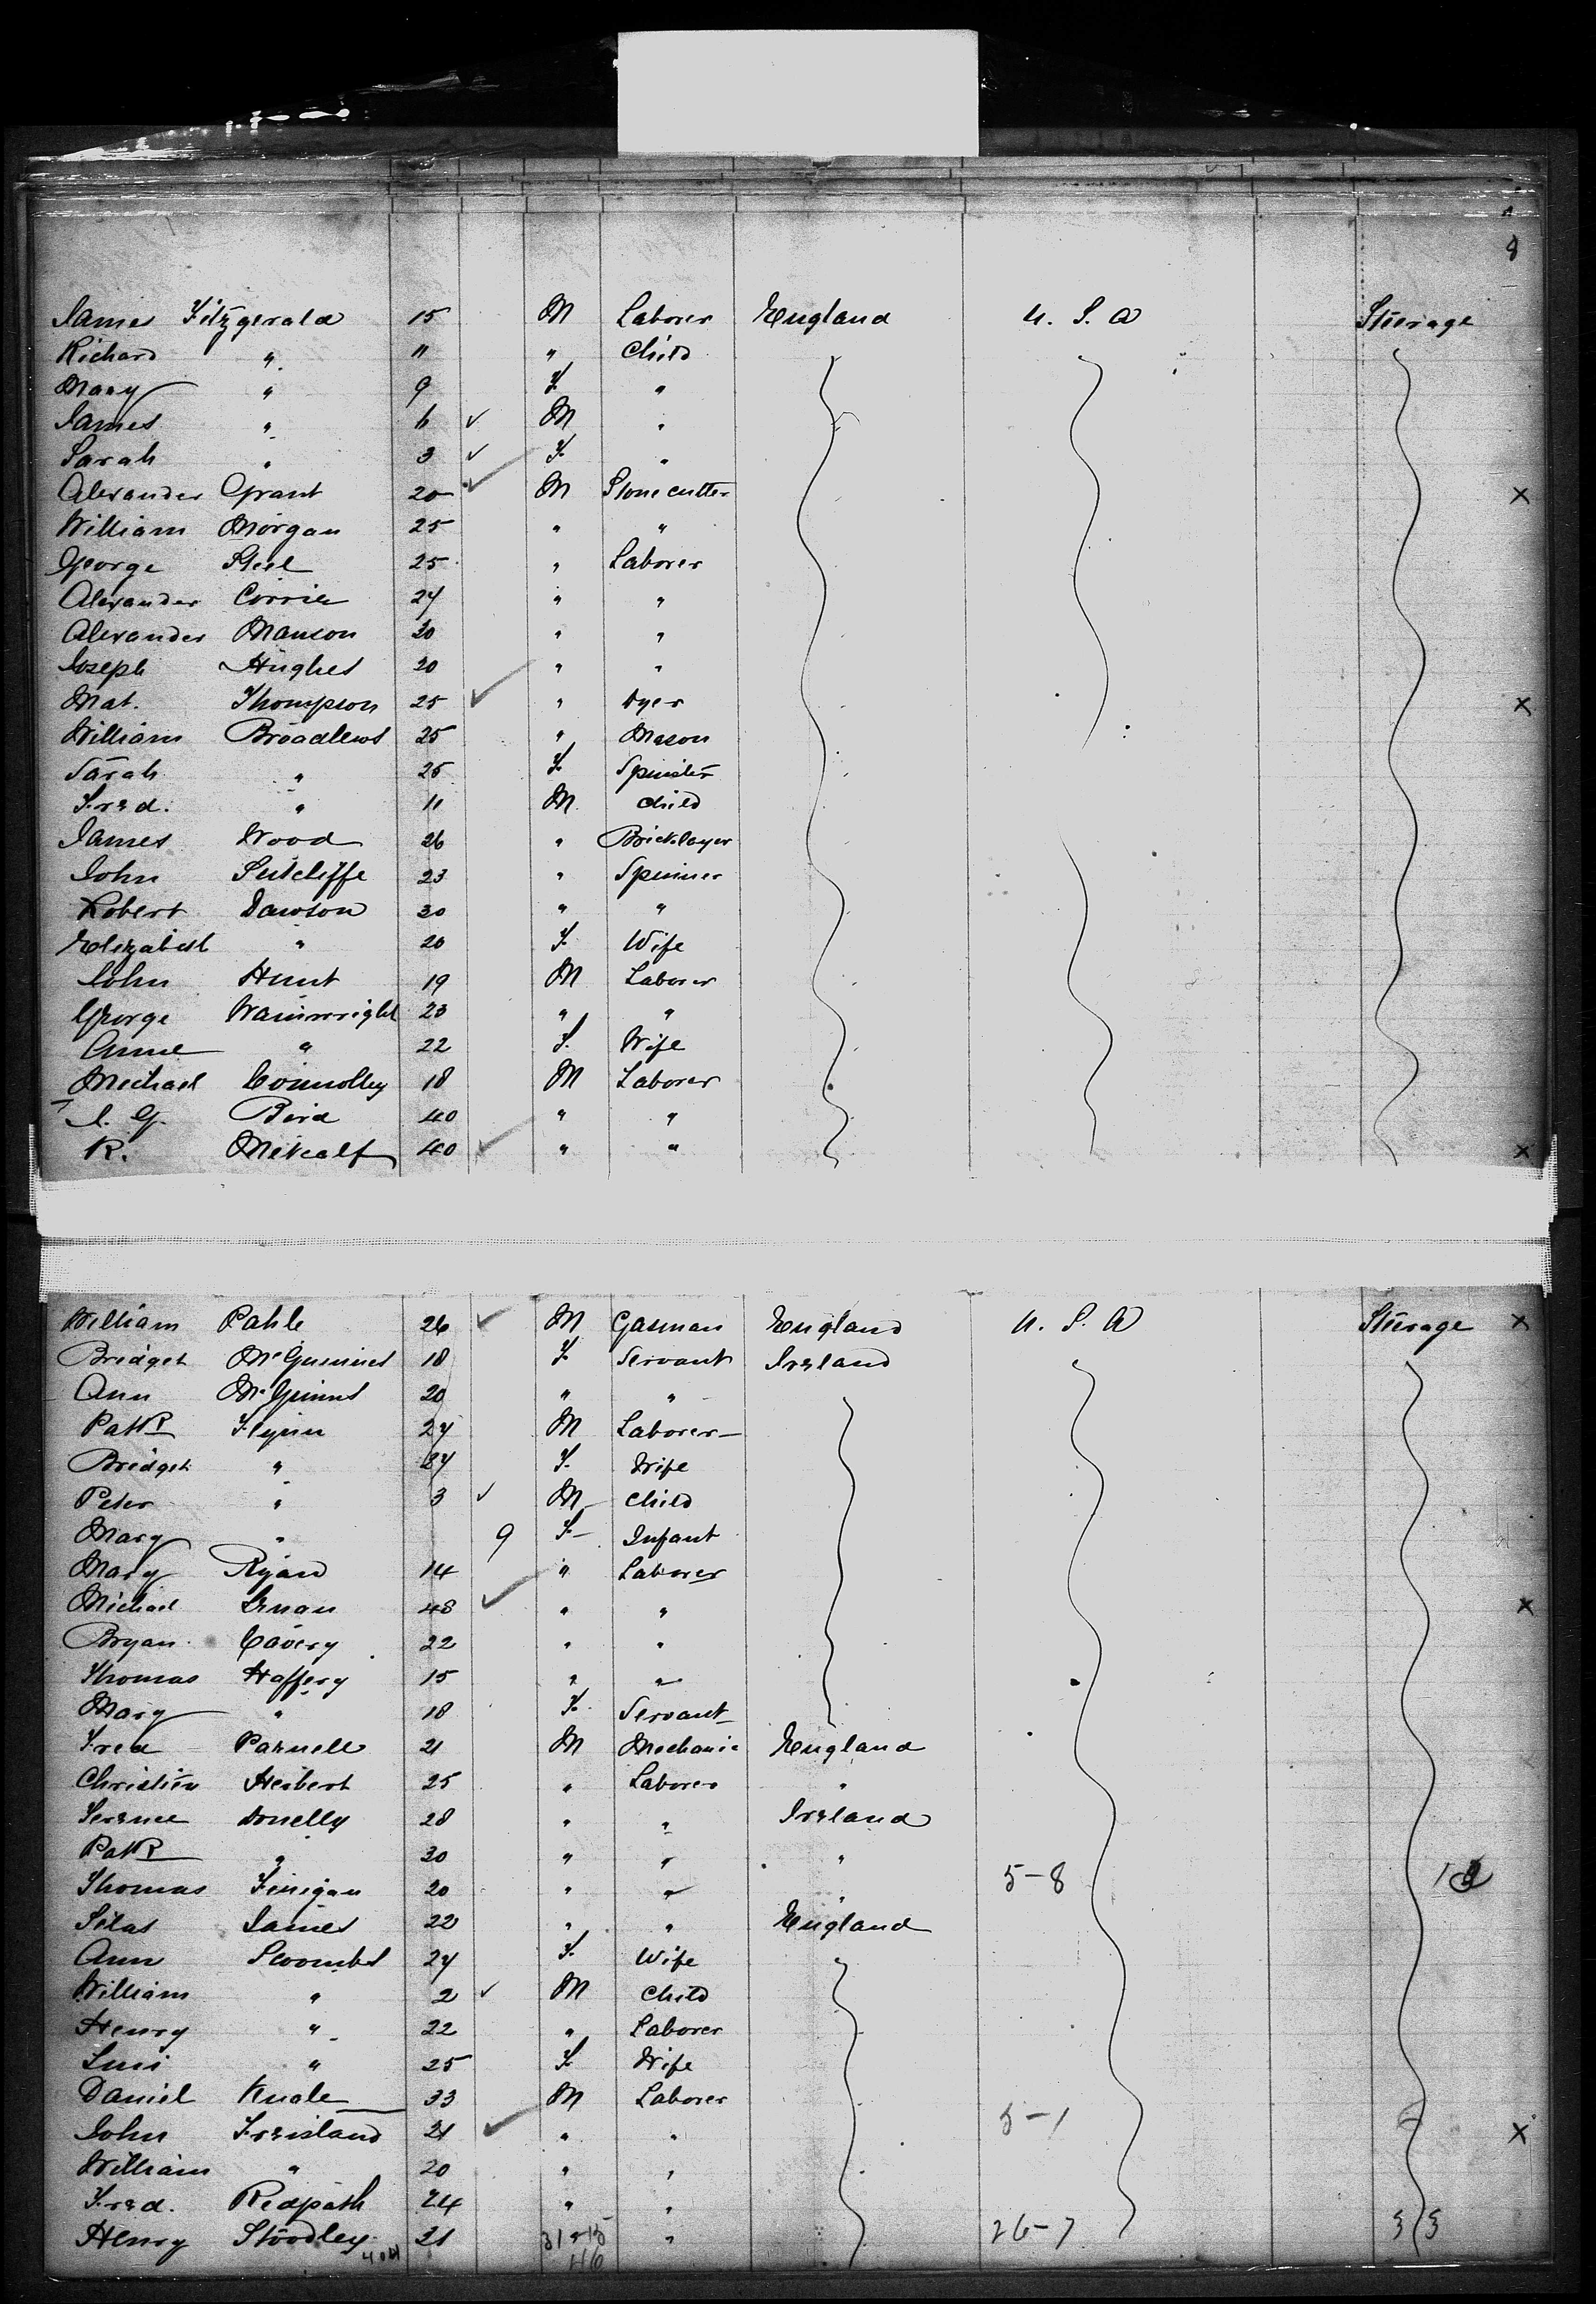 8
James Fitzgerald 15 M Laborer England U. S. A Steerage
Richard " 11 " Child
Mary " 9 F "
James " 6 ✓ M "
Sarah " 3 ✓ F "
Alexander Grant 20 ✓ M Stone cutter x
William Morgan 25 " "
George Steel 25 " Laborer
Alexander Corrie 24 " "
Alexander Manson 20 " "
Joseph Hughes 20 " "
Mat. Thompson 25 ✓ " Dyer x
William 25 " Mason
Sarah " 25 F Spinster
Fred. " 11 M Child
James Wood 26 " Bricklayer
John Sutcliffe 23 " Spinner
Robert Dawson 30 " "
Elizabeth " 20 F Wife
John Hunt 19 M Laborer
George Wainwright 23 " "
Anne " 22 F. Wife
Michael Connolley 18 M Laborer
J. G. Bird 40 " "
R. Metcalf 40 ✓ " " x
William Pahle 26 ✓ M Gasman England U. S. A Steerage x
Bridget 18 F Servant Ireland
Ann McGinnes 20 " "
Patk Flynn 24 M Laborer
Bridget " 24 F. Wife
Peter " 3 ✓ M Child
Mary " 9 F Infant
Mary Ryan 14 " Laborer
Michael 48 ✓ " " x
Bryan Cavery 22 " "
Thomas Haffery 15 " "
Mary " 18 F Servant
Fred Parnell 21 M Mechanic England
Christien Herbert 25 " Laborer "
Terence Donelly 28 " " Ireland
Patk " 30 " " "
Thomas Finigan 20 " " " 5-8
Silas James 22 " " England
Ann Scoombs 24 F. Wife
William " 2 ✓ M Child
Henry " 22 " Laborer
" 25 F Wife
Daniel 33 M Laborer
John Freisland 21 ✓ " " 5-1 x
William " 20 " "
Fred. Redpath 24 " "
Henry Stoodley 21 " 26-7